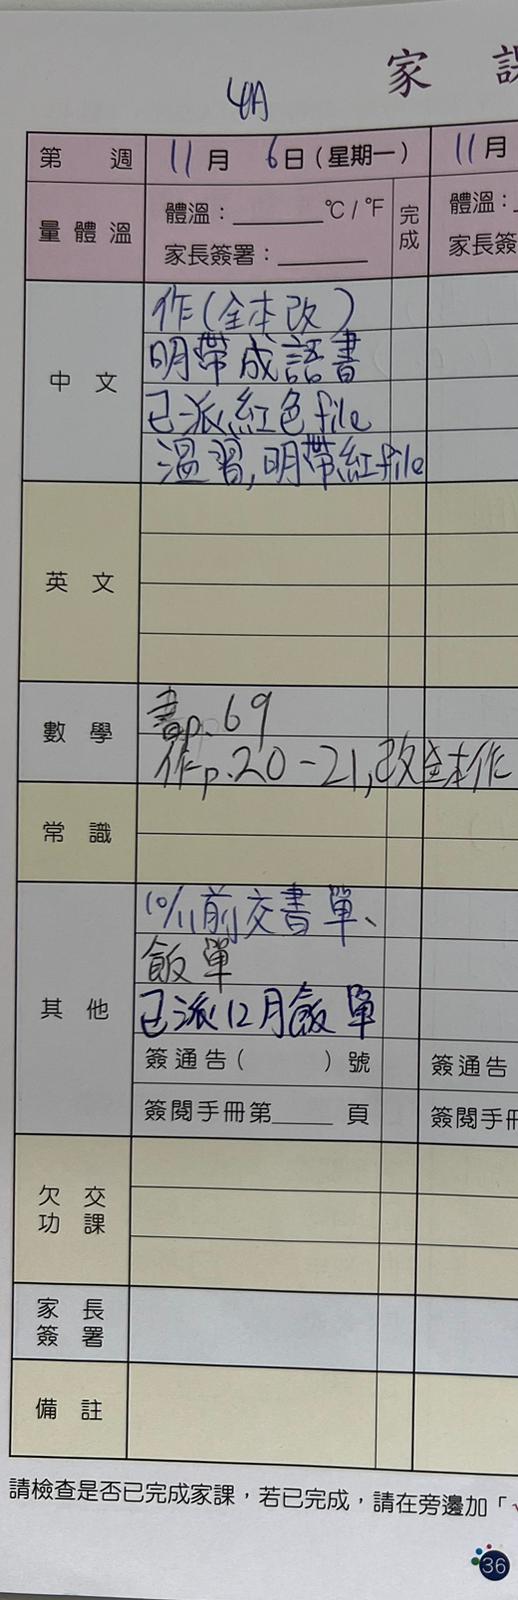 家 課
4A
第 週 11月 6日(星期一) 11月
量體溫 體溫:______℃/℉ 完成 體溫:
家長簽署:______ 家長簽
中文 作(全本改)
明帶成語書
已派紅色file
溫習,明帶紅file
英文
數學 書p.69
作p.20-21,改全本作
常識
其他 10/11前交書單、
飯單
已派12月飯單
簽通告( )號 簽通告
簽閱手冊第____頁 簽閱手冊
欠交
功課
家長
簽署
備註
請檢查是否已完成家課,若已完成,請在旁邊加「
36